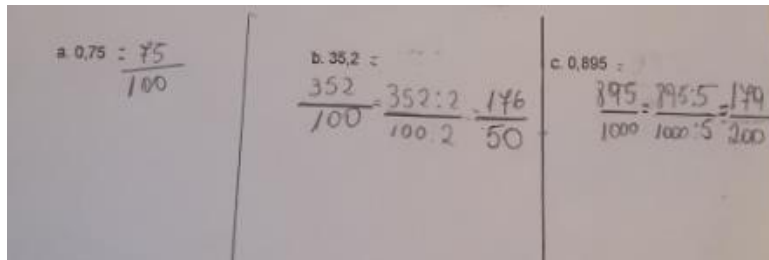 a. 0,75 = 75/100
b. 35,2 =
352/100 = 352:2/100:2 = 176/50
c. 0,895 =
895/1000 = 895:5/1000:5 = 179/200